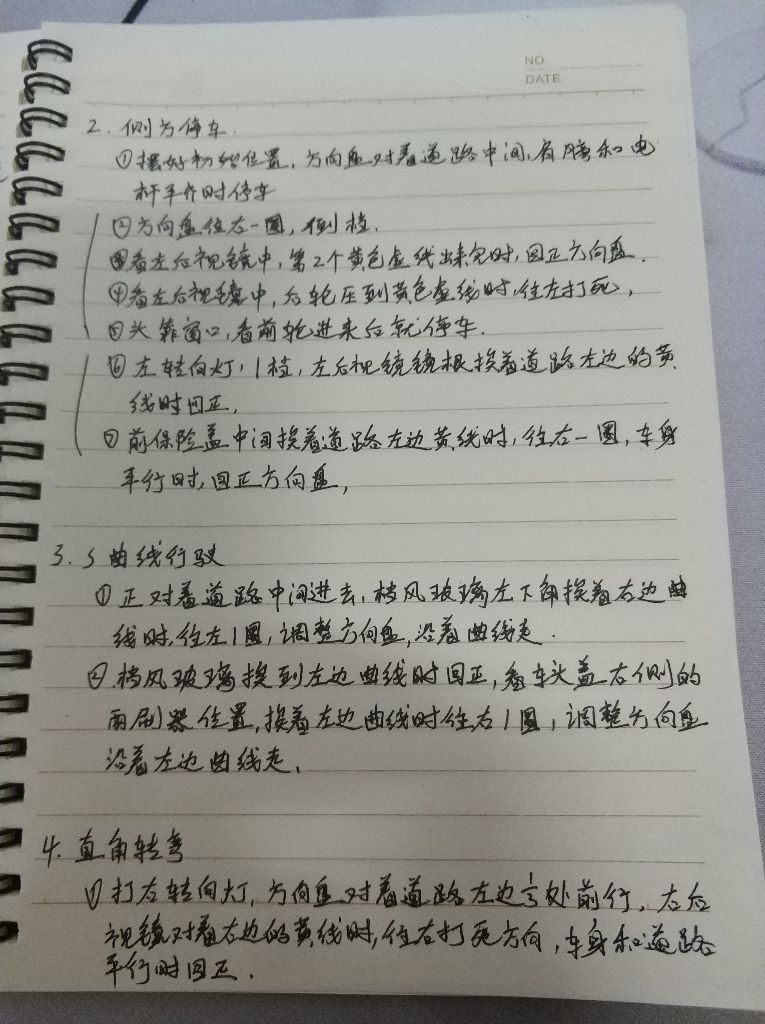 NO
DATE
2. 侧方停车.
①摆好初始位置,方向盘对着道路中间,肩膀和电
杆平齐时停车
②方向盘往右一圈,倒档.
③看左后视镜中,第2个黄色虚线出来完时,回正方向盘.
④看左后视镜中,后轮压到黄色虚线时,往左打死,
⑤头靠窗口,看前轮进来后就停车.
⑥左转向灯,1档,左后视镜镜根挨着道路左边的黄
线时回正,
⑦前保险盖中间挨着道路左边黄线时,往右一圈,车身
平行时,回正方向盘,
3. S曲线行驶
①正对着道路中间进去,档风玻璃左下角挨着右边曲
线时,往左1圈,调整方向盘,沿着曲线走.
②档风玻璃挨到左边曲线时回正,看车头盖右侧的
雨刷器位置,挨着左边曲线时往右1圈,调整方向盘
沿着左边曲线走,
4. 直角转弯
①打右转向灯,方向盘对着道路左边处前行,右后
视镜对着右边的黄线时,往右打死方向,车身和道路
平行时回正.